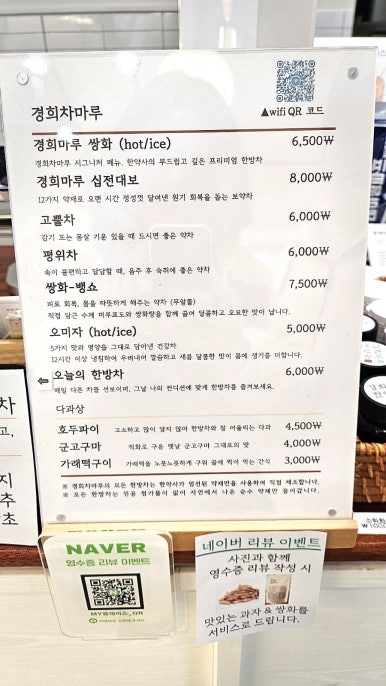 경희차마루
▲wifi QR 코드
경희마루 쌍화 (hot/ice) 6,500₩
경희차마루 시그니처 메뉴. 한약사의 부드럽고 깊은 프리미엄 한방차
경희마루 십전대보 8,000₩
12가지 약재로 오랜 시간 정성껏 달여낸 원기 회복을 돕는 보약차
고뿔차 6,000₩
감기 또는 몸살 기운 있을 때 드시면 좋은 약차
평위차 6,000₩
속이 불편하고 답답할 때, 음주 후 숙취에 좋은 약차
쌍화-뱅쇼 7,500₩
피로 회복, 몸을 따뜻하게 해주는 약차 (무알콜)
직접 담근 수제 머루포도와 쌍화탕을 함께 끓여 달콤하고 오묘한 맛이 납니다.
오미자 (hot/ice) 5,000₩
5가지 맛과 영양을 그대로 담아낸 건강차
12시간 이상 냉침하여 우려내어 깔끔하고 새콤 달콤한 맛이 몸에 생기를 더합니다.
오늘의 한방차 6,000₩
매일 다른 차를 선보이며, 그날 나의 컨디션에 맞게 한방차를 즐겨보세요.
다과상
호두파이 고소하고 많이 달지 않아 한방차와 잘 어울리는 다과 4,500₩
군고구마 직화로 구운 옛날 군고구마 그대로의 맛 4,000₩
가래떡구이 가래떡을 노릇노릇하게 구워 꿀에 찍어 먹는 간식 3,000₩
※ 경희차마루의 모든 한방차는 한약사가 엄선된 약재만을 사용하여 직접 제조합니다.
※ 모든 한방차는 인공 첨가물이 없이 자연에서 나온 순수 약재만 들어갑니다.
NAVER
영수증 리뷰 이벤트
MY플레이스_QR
네이버 리뷰 이벤트
사진과 함께
영수증 리뷰 작성 시
맛있는 과자 & 쌍화를
서비스로 드립니다.